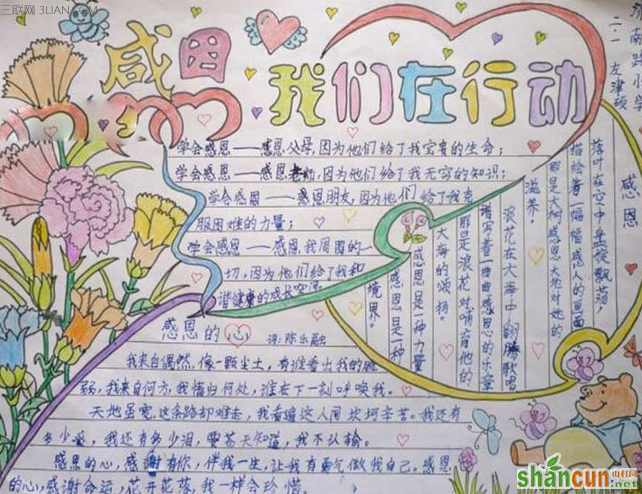 三联网 3LIAN.COM
感恩
我们在行动
济南路小
二·一 左津硕
学会感恩——感恩父母,因为他们给了我宝贵的生命;
学会感恩——感恩老师,因为他们给了我无穷的知识;
学会感恩——感恩朋友,因为他们给了我克
服困难的力量;
学会感恩——感恩我周围的一
切,因为他们给了我和
谐健康的成长空间
感恩
落叶在空中盘旋飘荡,
描绘着一幅幅感人的画面
那是大树感恩大地对她的
滋养。
浪花在大海中翻腾歌唱
谱写着一曲曲感恩的乐章
那是浪花对哺育他的
大海的颂扬。
感恩是一种力量
感恩是一种
境界。
感恩的心
词:陈乐融
我来自偶然,像一颗尘土,有谁看出我的脆
弱,我来自何方,我情归何处,谁在下一刻呼唤我。
天地虽宽,这条路却难走,我看遍这人间坎坷辛苦。我还有
多少爱,我还有多少泪,要苍天知道,我不认输。
感恩的心,感谢有你,伴我一生,让我有勇气做我自己。感恩
的心,感谢命运,花开花落,我一样会珍惜。
shancun